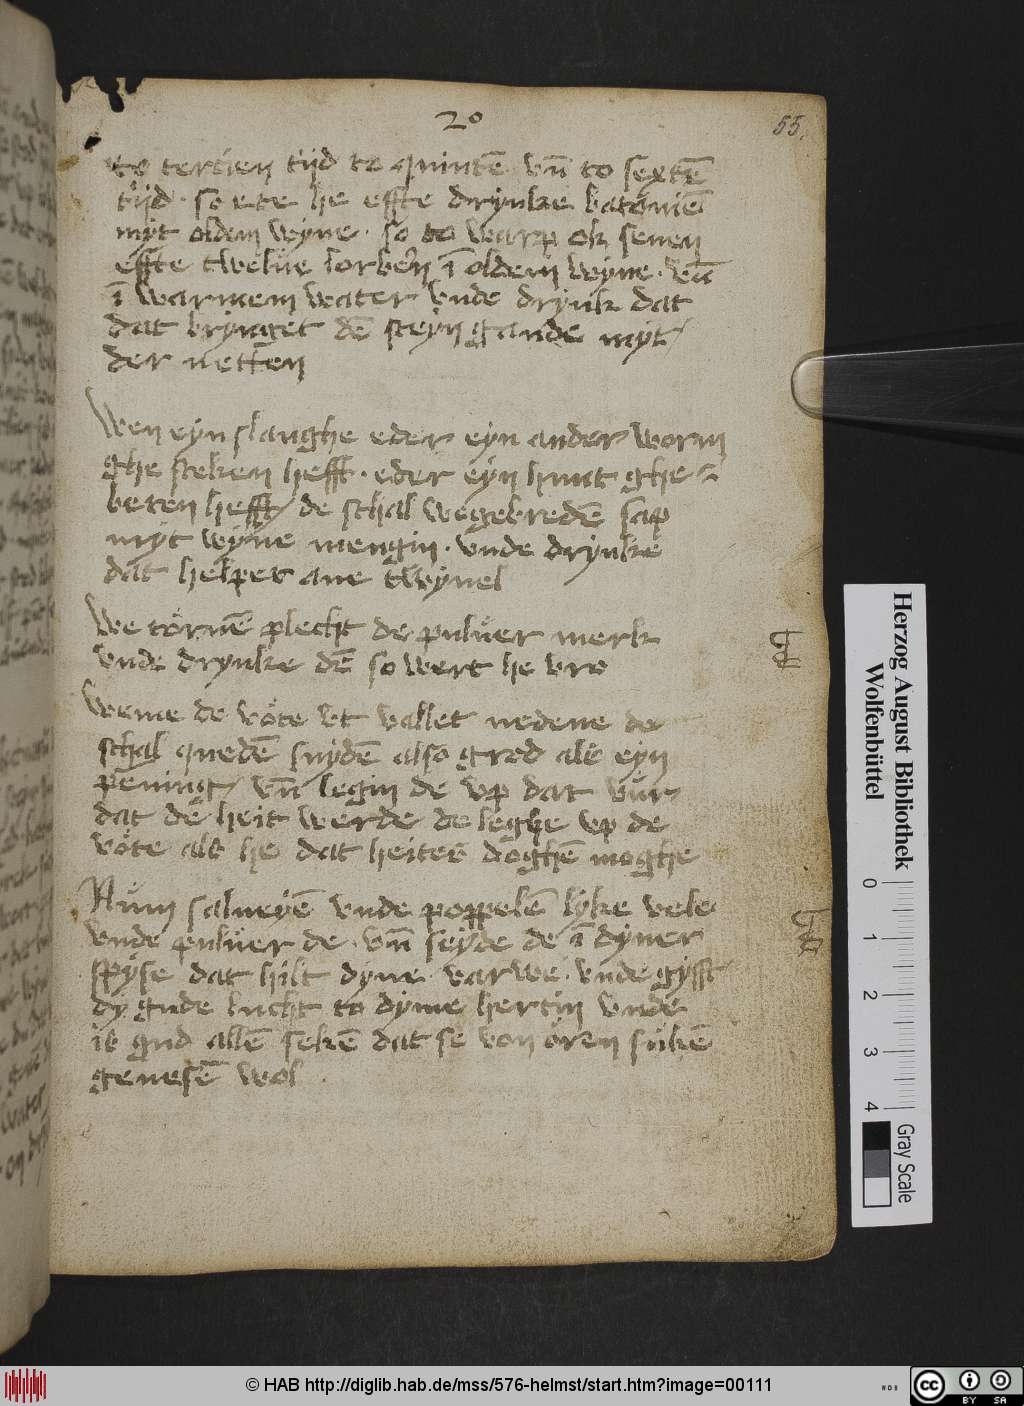 20
55.
to tercien tijd to quintē vn̄ to sextē
tijd · so ete he effte drynke batonię̄
myt oldem wyne · so to warp ok seuen
effte twelue lorberń ī oldem wyne · vn̄
ī warmem water vnde drynk dat
dat brynget dē steyn gande myt
der netten
Wen eyn slanghe eder eyn ander worm
ghe steken hefft · eder eyn hunt ghe
beten hefft de schal wegebredē sap
myt wyne mengin · vnde drynke
dat helpet ane twyuel
We törnē plecht de puluer merk
vnde drynke dē so wert he vro
Weme de vöte vt vallet nedene de
schal quedē snydē also grod als eyn
pēning vn̄ legin de vp dat vür
dat de heit werde de leghe vp de
vöte als he dat heites doghē moghe
Nüm salueyē vnde poppelē lyke vele
vnde puluer de · vn̄ seyde de ī dyner
spyse dat hilt dyne varwe · vnde gyfft
dy gude lucht to dyme hertin vnde
is gud allē sekē dat se von ören sükē
genesē wol
Herzog August Bibliothek
Wolfenbüttel
0 1 2 3 4
Gray Scale
© HAB http://diglib.hab.de/mss/576-helmst/start.htm?image=00111
cc BY SA